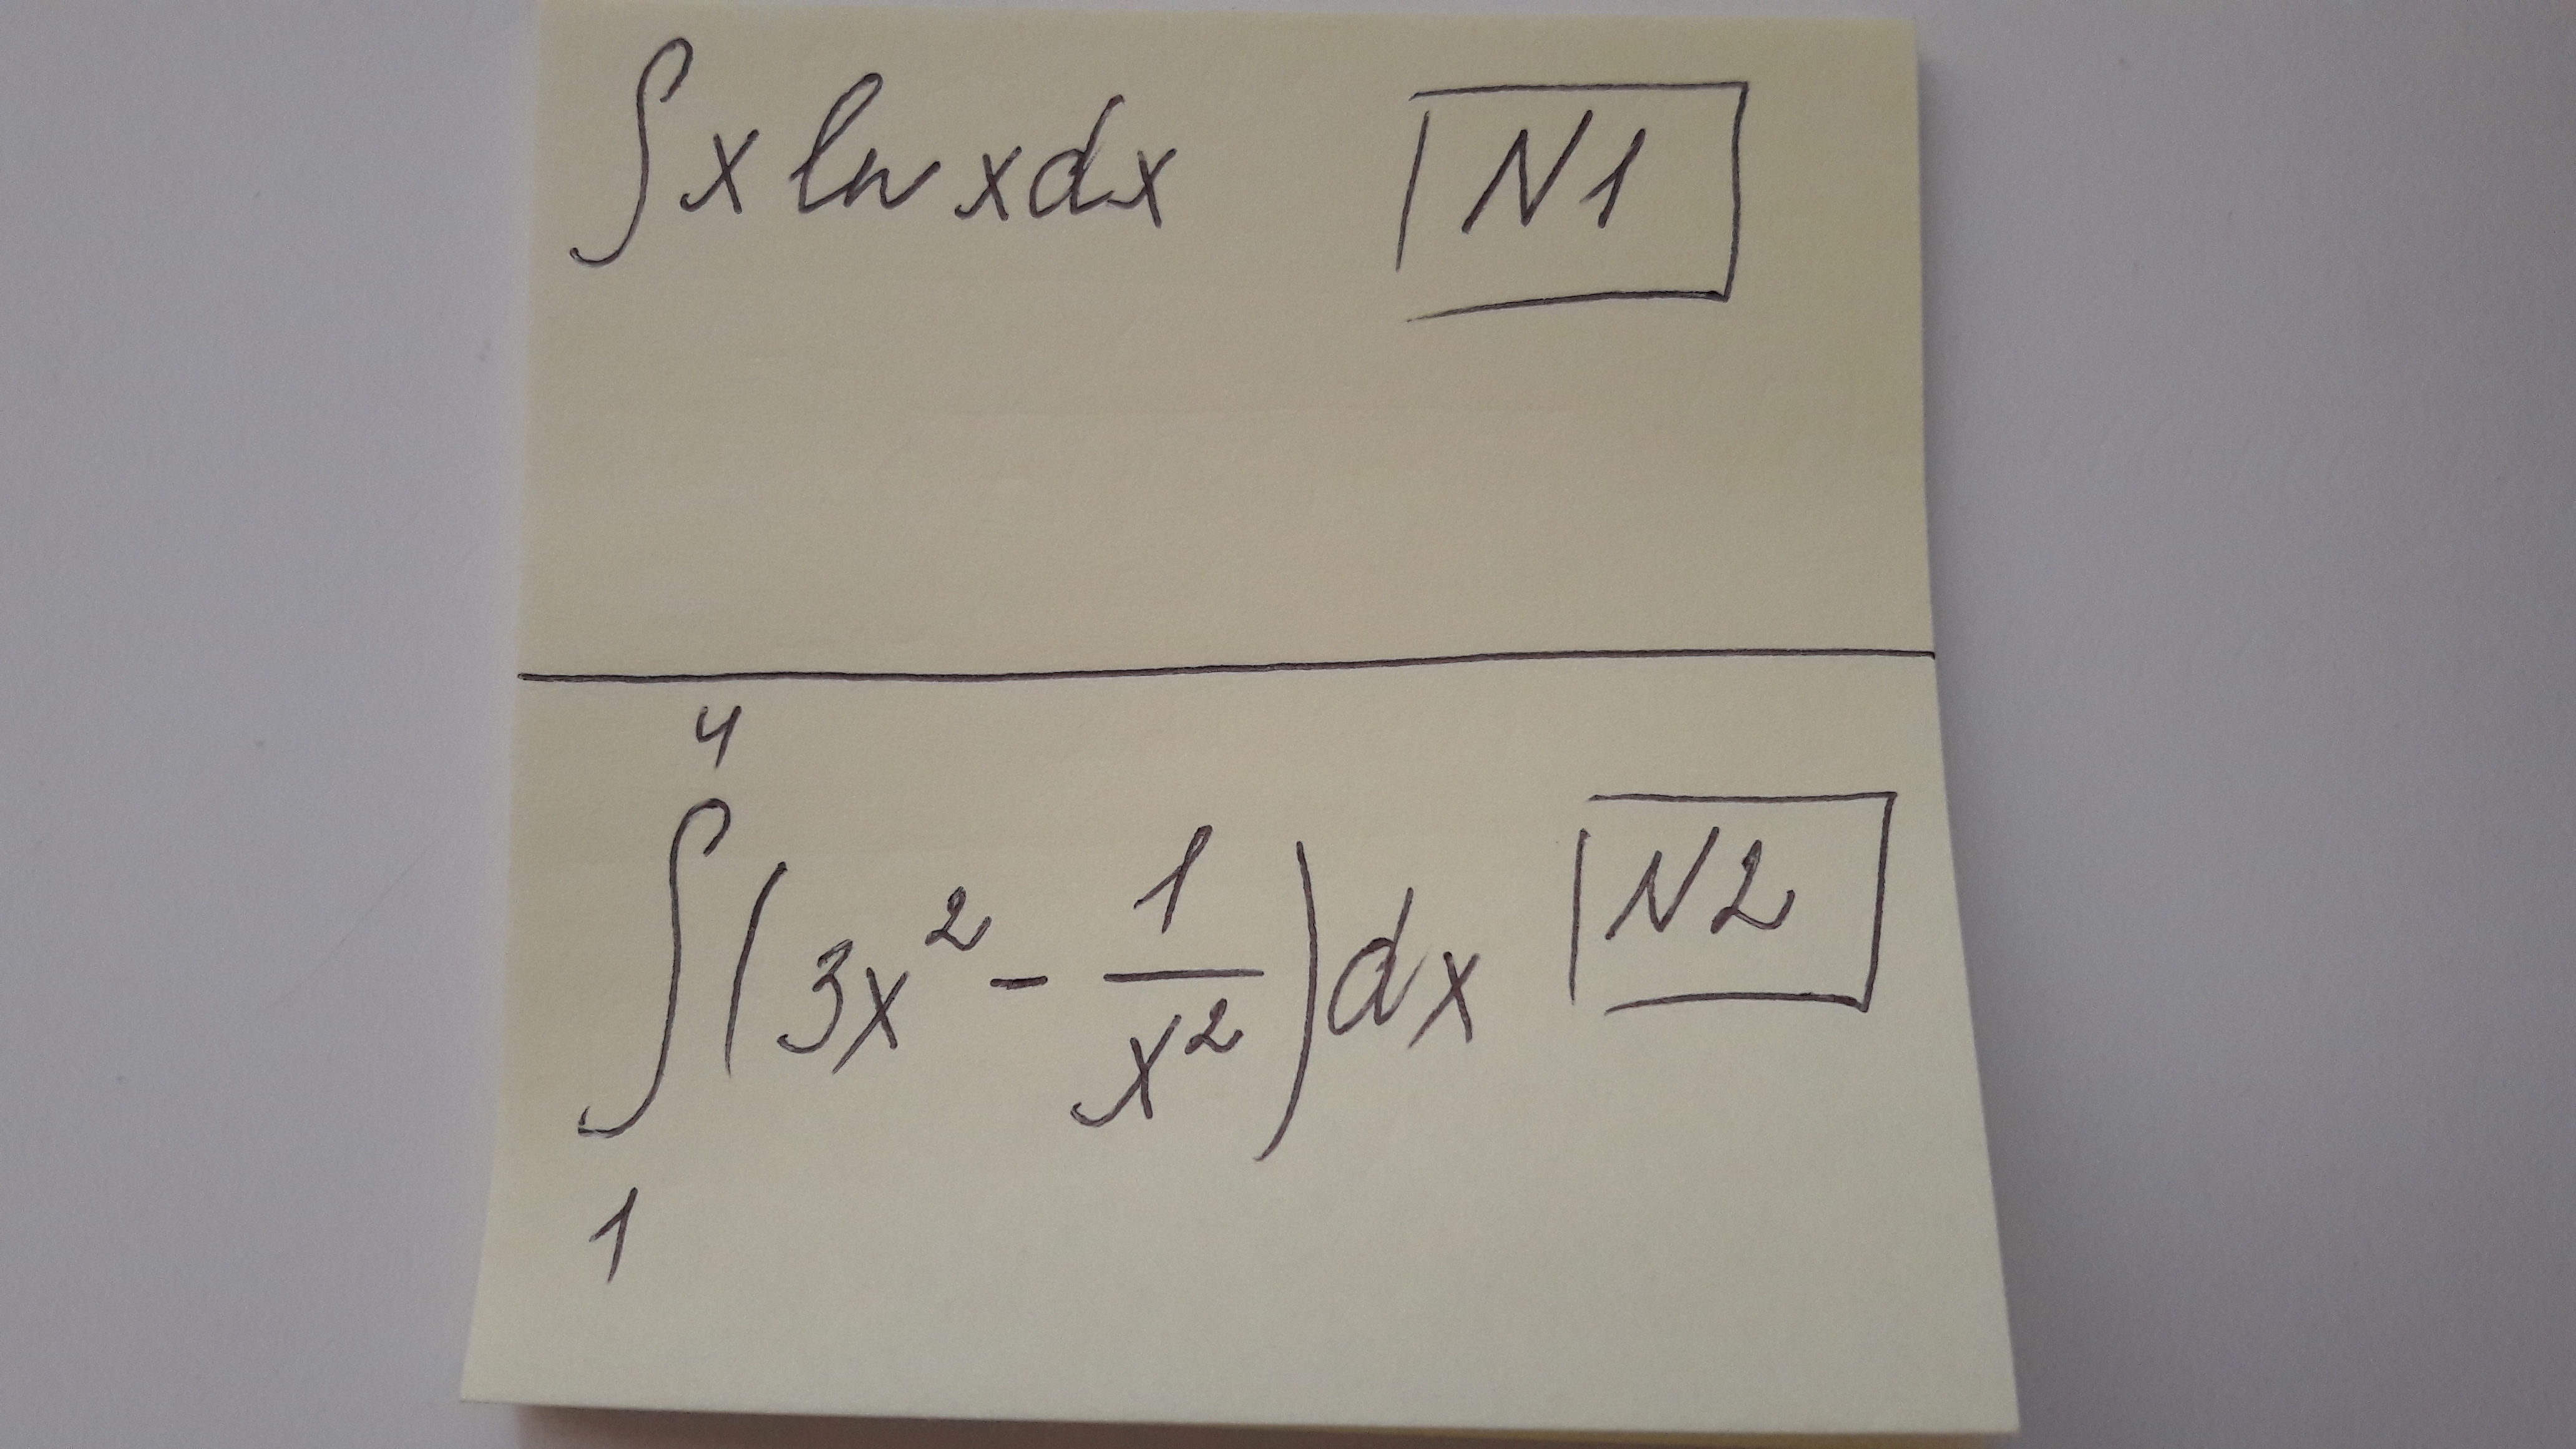 ∫ x ln x dx   N1
∫₁⁴ (3x² - 1/x²) dx   N2